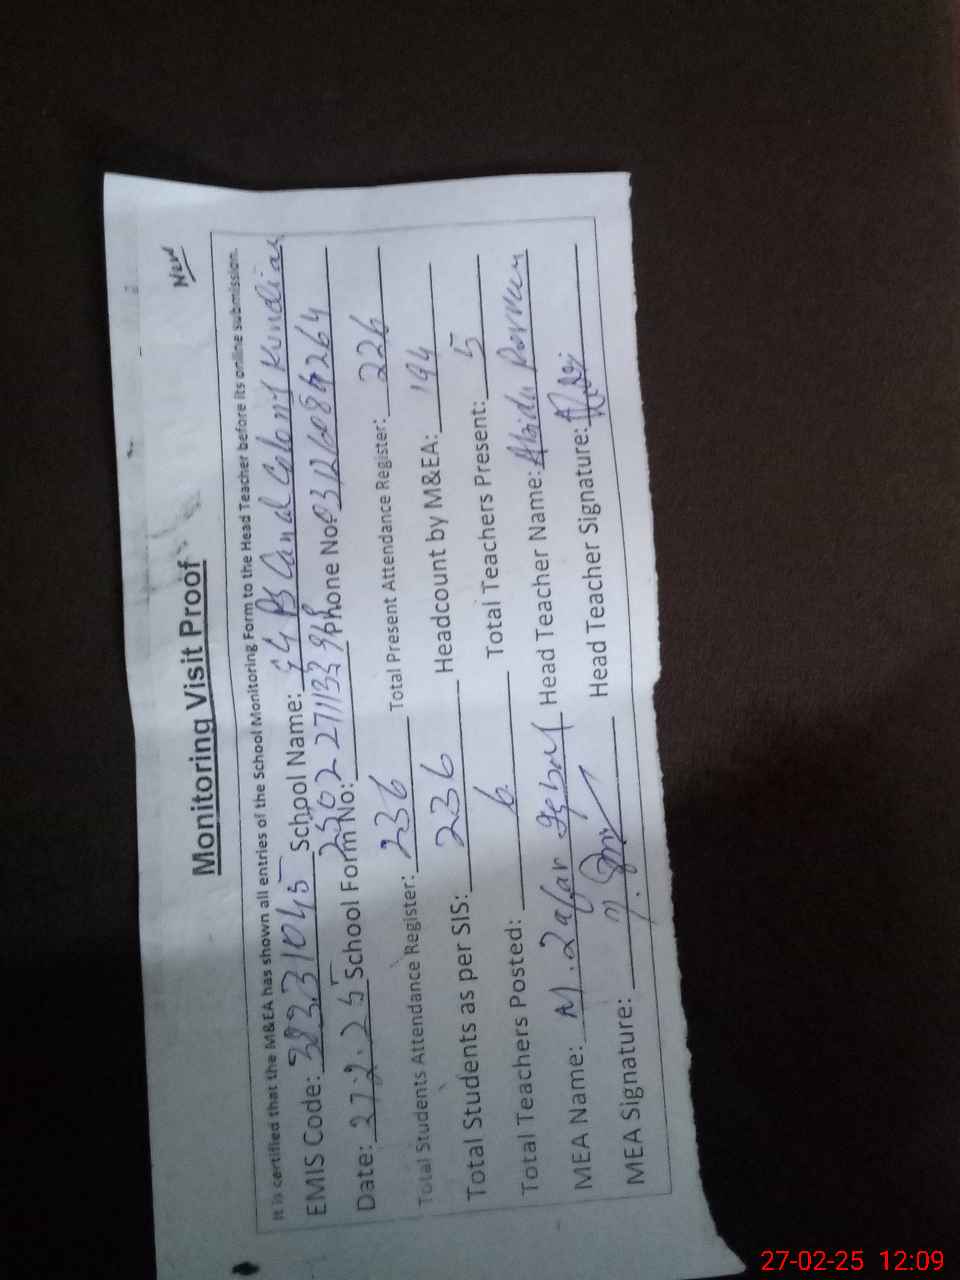 New
Monitoring Visit Proof
It is certified that the M&EA has shown all entries of the School Monitoring Form to the Head Teacher before its online submission.
EMIS Code: School Name: PS Canal Colony Kundian
Date: 27.2.25 School Form No: Phone No:
Total Students Attendance Register: 236 Total Present Attendance Register: 226
Total Students as per SIS: 236 Headcount by M&EA: 194
Total Teachers Posted: 6 Total Teachers Present: 5
MEA Name: M. Zafar Head Teacher Name: Abida Parveen
MEA Signature: Head Teacher Signature:
27-02-25 12:09